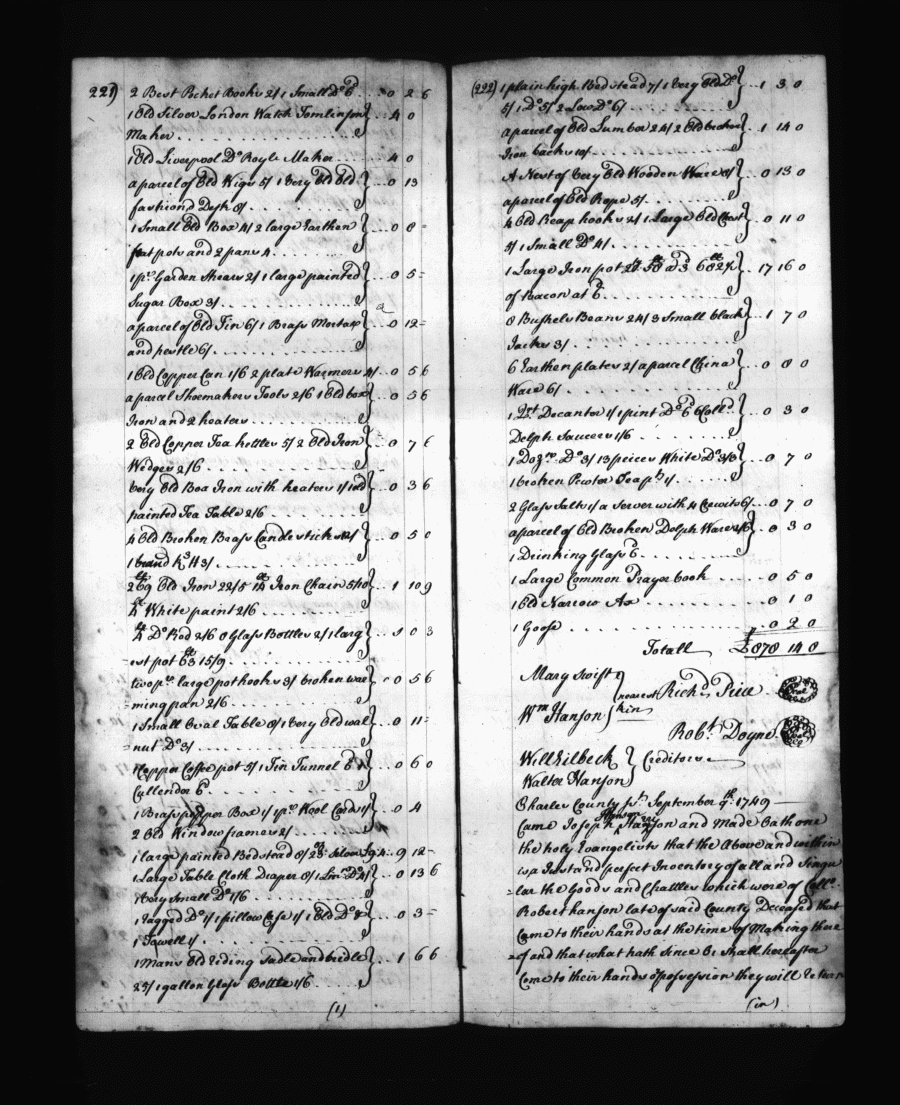 221)
2 Best Pocket Books 2/ 1 Small Do 6d .. 0 2 6
1 Old Silver London Watch Tomlinson } 4 0
Maker
1 Old Liverpool Do Royle Maker .... 4 0
a parcel of Old Wigs 5/ 1 Very Old Old } .. 0 13
fashion'd Desk 8/
1 Small Old Box 4/ 2 large Earthen } .. 0 8 =
fat pots and 2 pans 4
1 pr. Garden Shears 2/ 1 large painted } .. 0 5 =
Sugar Box 3/
a parcel of Old Tin 6/ 1 Brass Mortar } .. 0 12 =
and pestle 6/
1 Old Copper Can 1/6 2 plate Warmers 4/ .. 0 5 6
a parcel Shoemakers Tools 2/6 1 Old box } .. 0 5 6
Iron and 2 heaters
2 Old Copper Tea kettles 5/ 2 Old Iron } .. 0 7 6
Wedges 2/6
Very Old Box Iron with heaters 1/ 1 old } .. 0 3 6
painted Tea Table 2/6
4 Old Broken Brass Candlesticks 2/ } .. 0 5 0
1 brand RH 3/
Old Iron 22/5 Iron Chain 5/10 } .. 1 10 9
White paint 2/6
Do Rod 2/6 8 Glass Bottles 2/ 1 larg } .. 1 0 3
=est pot 63 15/9
two pr. large pothooks 3/ broken war } .. 0 5 6
=ming pan 2/6
1 Small Oval Table 8/ 1 Very Old wal } .. 0 11 =
=nut Do 3/
1 Copper Coffee pot 5/ 1 Tin Tunnel 6d } .. 0 6 0
Cullender 6d
1 Brass pepper Box 1/ 1 pr. Wool Cards 1/ } .. 0 4
2 Old Window frames 2/
1 large painted Bedstead 8/ Silver 9 12 =
1 Large Table Cloth Diaper 8/ 1 Sm. Do 4/ } .. 0 13 6
1 Very Small Do 1/6
1 ragged Do 1/ 1 pillow Case 1/ 1 Old Do } .. 0 3 =
1 Towell 1/
1 Mans Old riding Sadle and bridle } .. 1 6 6
25/ 1 gallon Glass Bottle 1/6
(1)
(222)
1 plain high Bedstead 7/ 1 Very Old Do } .. 1 3 0
5/ 1 Do 5/ 2 Low Do 6/
a parcel of Old Lumber 24/ 2 Old broken } .. 1 14 0
Iron backs 10/
A Nest of Very Old Wooden Ware 8/ } .. 0 13 0
a parcel of Old Rope 5/
4 Old Reap hooks 2/ 1 Large Old Chest } .. 0 11 0
5/ 1 Small Do 4/
1 Large Iron pot } 17 16 0
of Bacon at 6d
8 Bushels Beans 24/ 3 Small black } .. 1 7 0
Jacks 3/
6 Earthen plates 2/ a parcel China } .. 0 8 0
Ware 6/
1 Qt Decanter 1/ 1 pint Do 6d 6 Coll'd } .. 0 3 0
Delph Saucers 1/6
1 Doz. Do 3/ 13 pieces White Do 3/ } .. 0 7 0
1 broken Pewter Teapt. 1/
2 Glass Salts 1/ a Server with 4 Crewits 6/ .. 0 7 0
a parcel of Old Broken Delph Ware 2/6 } .. 0 3 0
1 Drinking Glass 6d
1 Large Common Prayer book .... 0 5 0
1 Old Narrow Ax .... 0 1 0
1 Goose .... 0 2 0
Totall £878 14 8
Mary Swift } nearest Richd. Price
Wm Hanson } kin
Robt. Doyne
Will Kilbeck } Creditors
Walter Hanson
Charles County Sst. September 9th. 1749
Came Joseph Hanson and Made Oath on
the holy Evangelists that the Above and within
is a Just and perfect Inventory of all and Singu
=lar the Goods and Chattles which were of Collo.
Robert hanson late of said County Deceased that
Came to their hands at the time of Making there
=of and that what hath Since Or Shall hereafter
Come to their hands or possession they will return
(in)